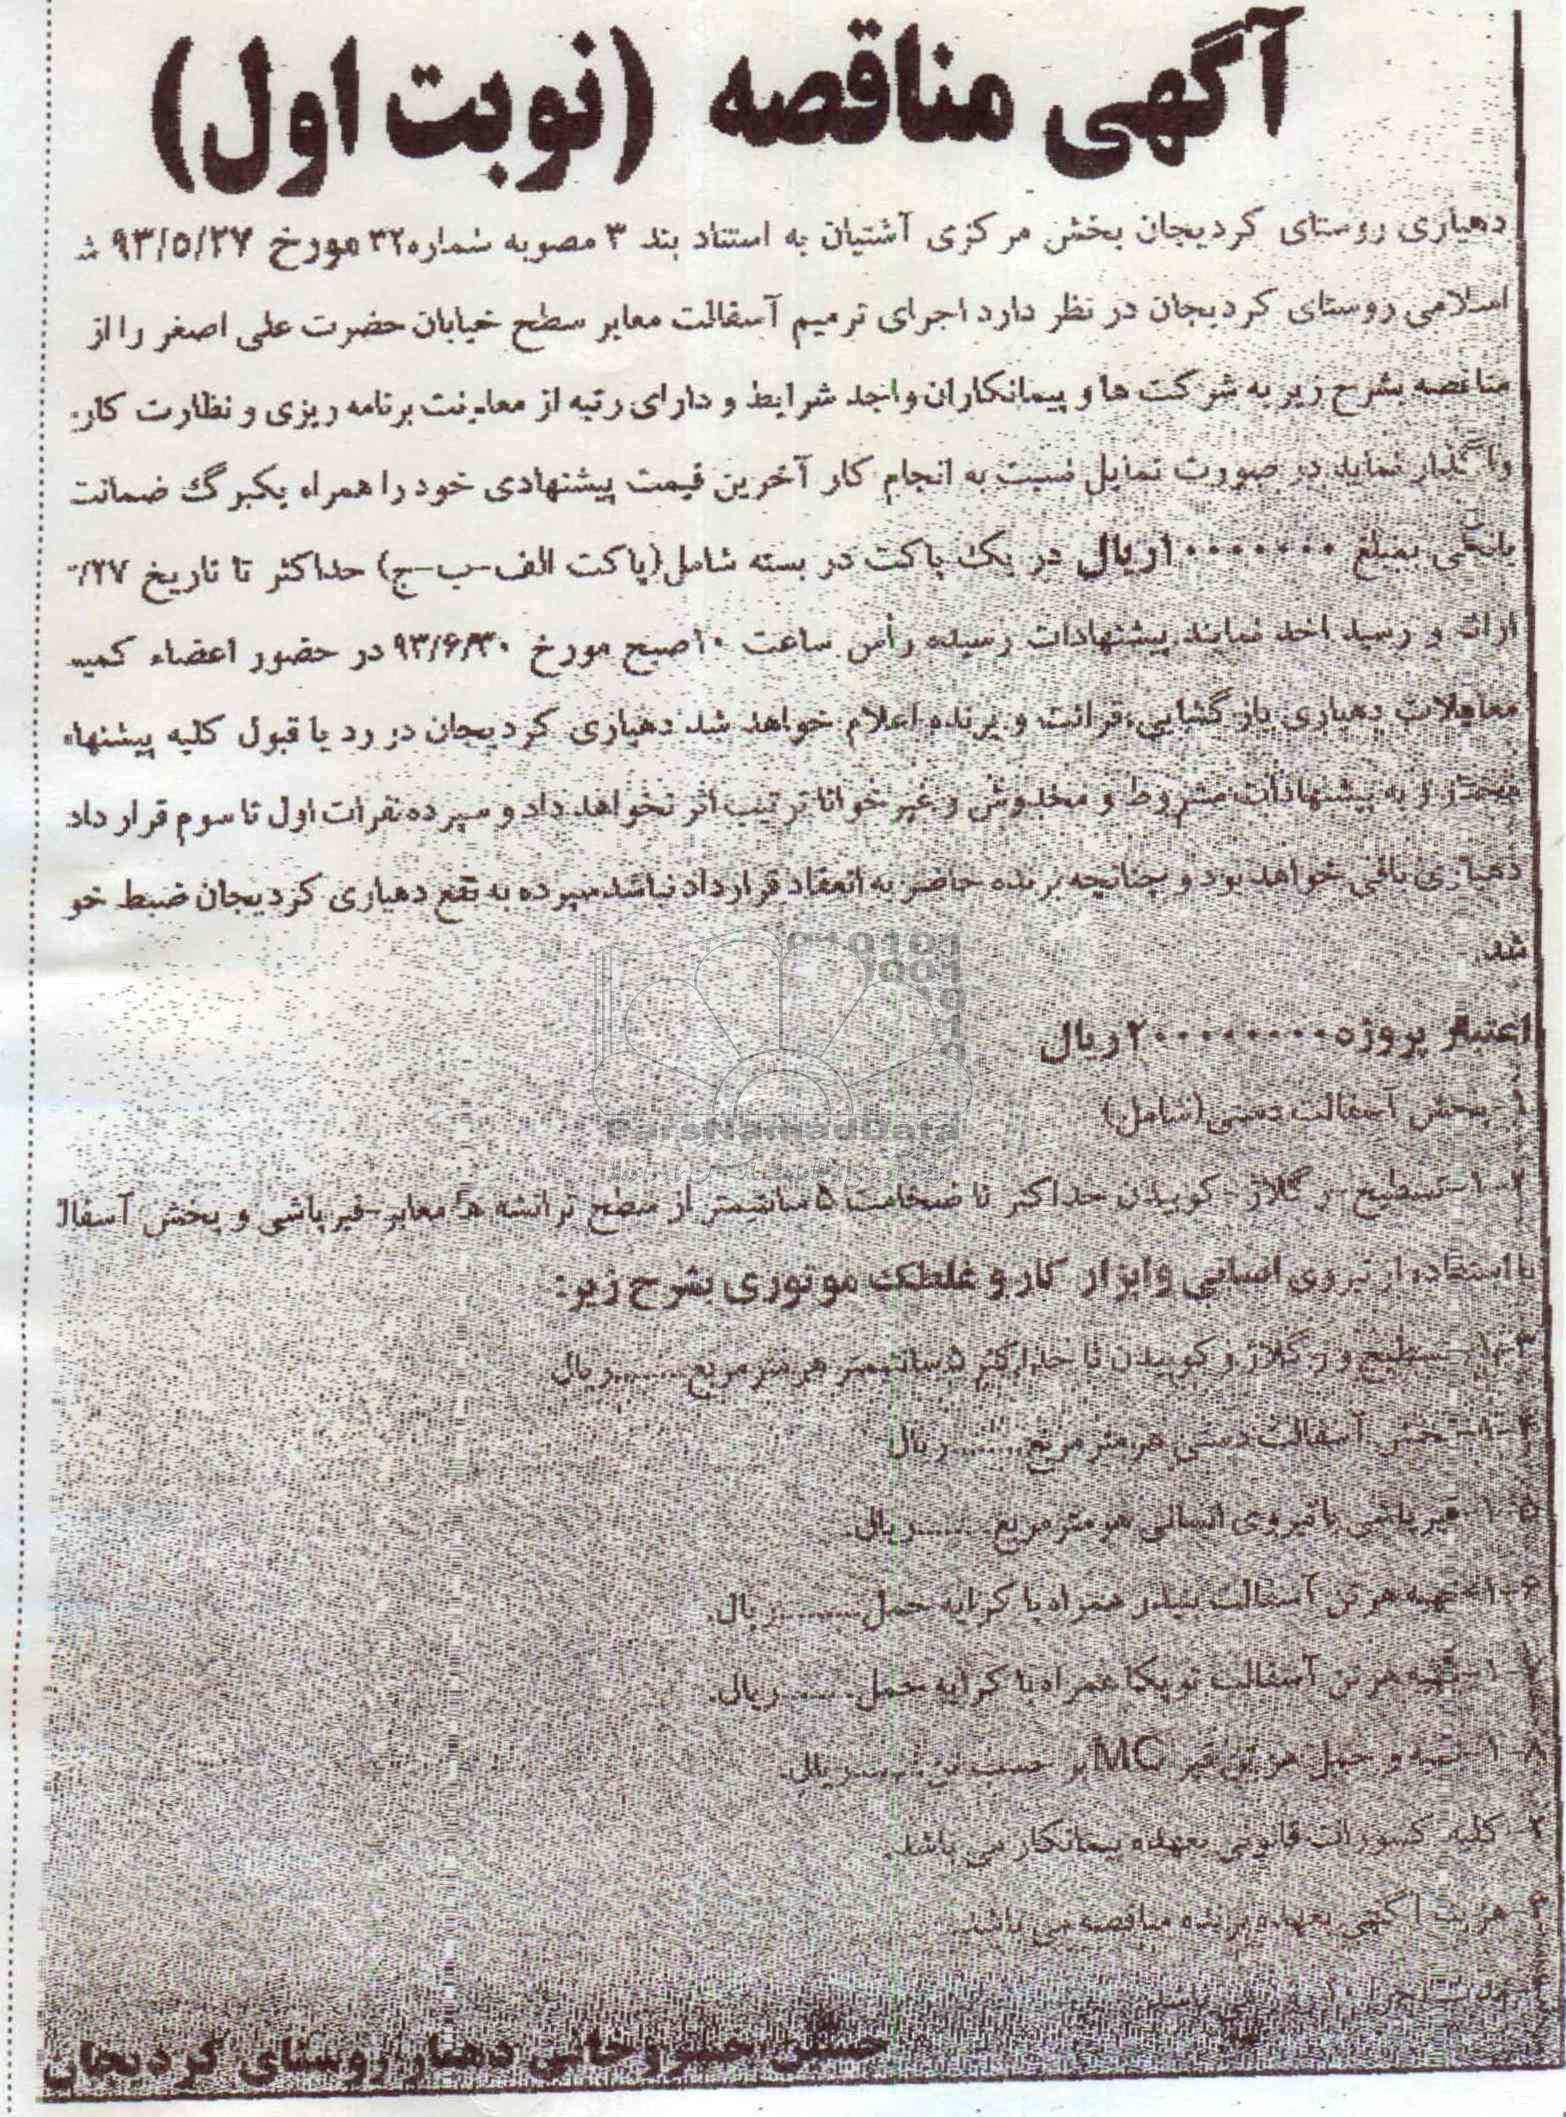 آگهی مناقصه (نوبت اول)
دهیاری روستای کردیجان بخش مرکزی آشتیان به استناد بند ۳ مصوبه شماره ۳۲ مورخ ۹۳/۵/۲۷ ش
اسلامی روستای کردیجان در نظر دارد اجرای ترمیم آسفالت معابر سطح خیابان حضرت علی اصغر را از
مناقصه بشرح زیر به شرکت ها و پیمانکاران واجد شرایط و دارای رتبه از معاونت برنامه ریزی و نظارت کار
واگذار نماید در صورت تمایل نسبت به انجام کار آخرین قیمت پیشنهادی خود را همراه یکبرگ ضمانت
بانکی بمبلغ ۱۰۰۰۰۰۰۰ ریال در یک پاکت در بسته شامل (پاکت الف-ب-ج) حداکثر تا تاریخ ۲۷/
ارائه و رسید اخذ نمایند پیشنهادات رسیده رأس ساعت ۱۰ صبح مورخ ۹۳/۶/۳۰ در حضور اعضاء کمیس
معاملات دهیاری بازگشایی، قرائت و برنده اعلام خواهد شد دهیاری کردیجان در رد یا قبول کلیه پیشنها
مختار و به پیشنهادات مشروط و مخدوش و غیر خوانا ترتیب اثر نخواهد داد و سپرده نفرات اول تا سوم قرار داد
دهیاری باقی خواهد بود و چنانچه برنده حاضر به انعقاد قرارداد نباشد سپرده به نفع دهیاری کردیجان ضبط خو
شد.
اعتبار پروژه ۲۰۰۰۰۰۰۰۰ ریال
ParsNamadData
۱- پخش آسفالت دستی (شامل)
۱-۲- تسطیح- رگلاژ- کوبیدن حداکثر تا ضخامت ۵ سانتیمتر از سطح ترانشه ها معابر- قیر پاشی و پخش آسفال
با استفاده از نیروی انسانی و ابزار کار و غلطک موتوری بشرح زیر:
۱-۳- تسطیح و رگلاژ و کوبیدن تا حداکثر ۵ سانتیمتر هر متر مربع ........ ریال
۱-۴- پخش آسفالت دستی هر متر مربع ........ ریال
۱-۵- قیر پاشی با نیروی انسانی هر متر مربع ........ ریال.
۱-۶- تهیه هر تن آسفالت بیندر همراه با کرایه حمل ........ ریال.
۱-۷- تهیه هر تن آسفالت توپکا همراه با کرایه حمل ........ ریال.
۱-۸- تهیه و حمل هر تن قیر MC بر حسب تن ........ ریال.
۲- کلیه کسورات قانونی بعهده پیمانکار می باشد.
۳- هزینه آگهی بعهده برنده مناقصه می باشد.
۴- مدت اجرا ۱۰
حسین خسروخانی دهیار روستای کردیجان